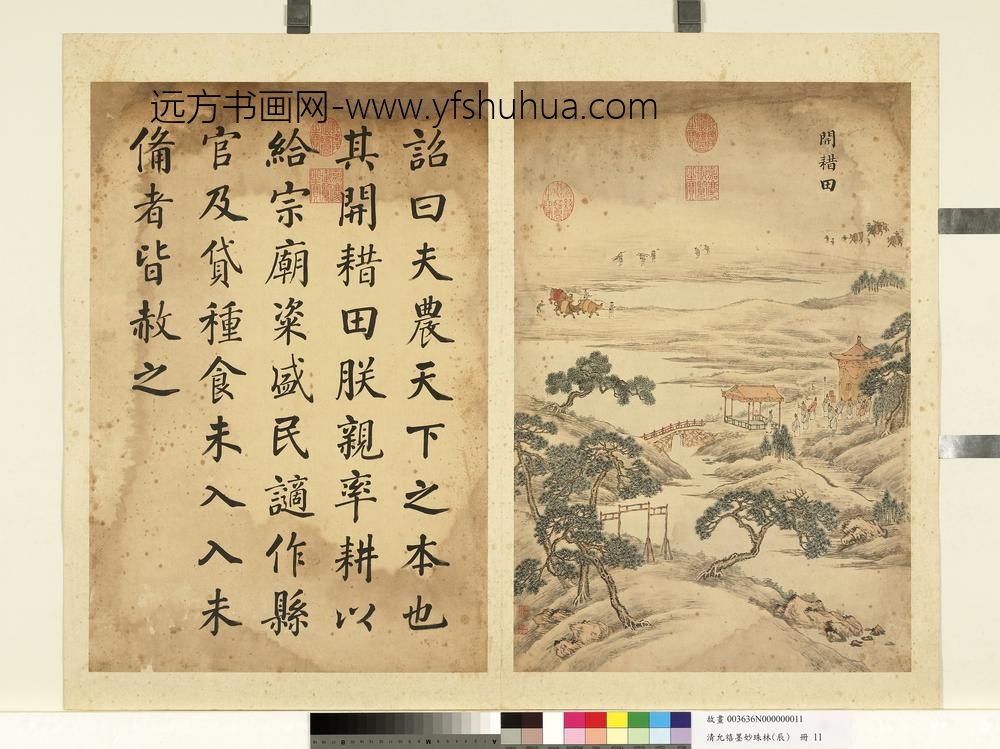 远方书画网-www.yfshuhua.com
開耤田
詔曰夫農天下之本也
其開耤田朕親率耕以
給宗廟粢盛民謫作縣
官及貸種食未入入未
備者皆赦之
故畫 003636N000000011
清允禧墨妙珠林(辰) 冊 11